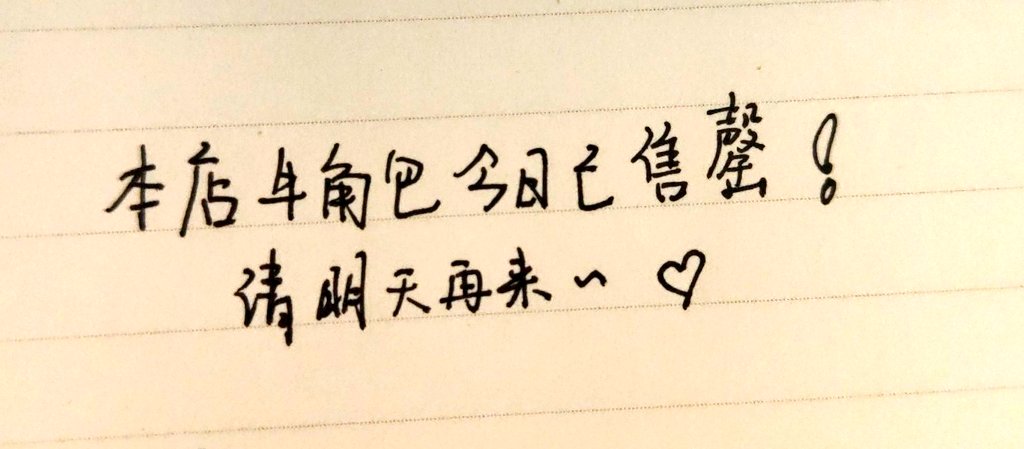 本店牛角包今日已售罄!
请明天再来~ ♡